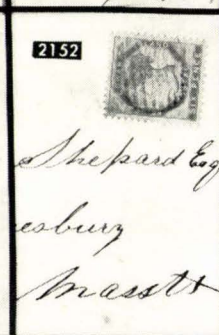 2152
Shepard Esq
esbury
Masstts